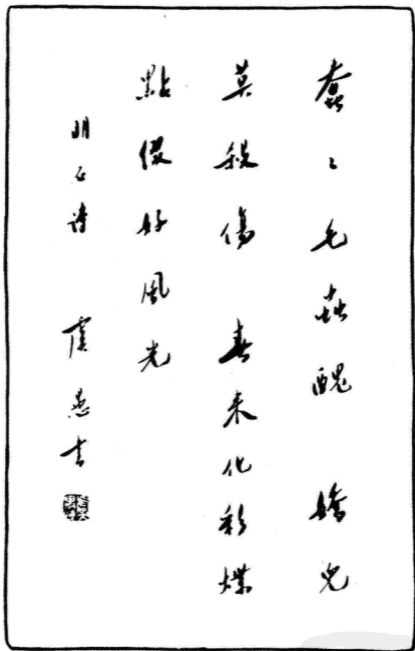 蠢〻毛虫醜 嬌兒
莫殺傷 春來化彩蝶
點綴好風光
朋石詩 虞愚書